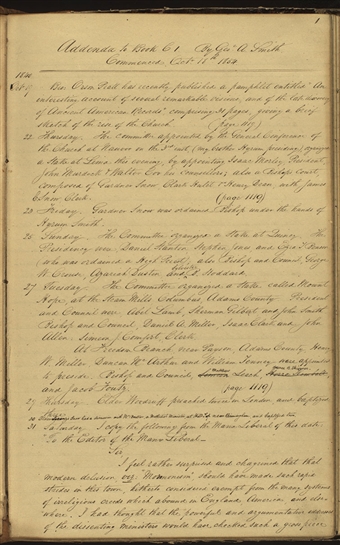 1
Addenda to Book C 1 By Geo. A. Smith
Commenced Oct. 18th 1854
1840
Oct. 9 Bro. Orson Pratt has recently published a pamphlet entitled "An
interesting account of several remarkable visions, and of the late discovery
of Ancient American Records" comprising pages, giving a brief
sketch of the rise of the Church. (page 1117)
22 Thursday. The committee appointed by the General Conference of
the Church at Nauvoo on the 3rd inst (my brother Hyrum presiding) organized
a Stake at Lima this evening, by appointing Isaac Morley, President,
John Murdock & Walter Cox his counsellors; also a Bishop's Court,
composed of Gardner Snow, Clark Hulet & Henry Dean, with James
Snow, Clerk. (page 1119)
23 Friday. Gardner Snow was ordained Bishop under the hands of
Hyrum Smith.
25 Sunday. The Committee organized a Stake at Quincy. The
Presidency were Daniel Stanton, Stephen Jones and Ezra T. Benson
(who was ordained a High Priest), also Bishop and Council, George
W. Crouse, Azariah Dustin, and Stoddard.
27 Tuesday. The Committee organized a Stake called Mount
Hope, at the Steam Mills Columbus, Adams County. President
and Council were Abel Lamb, Sherman Gilbert and John Smith
Bishop and Council, Daniel A. Miller, Isaac Clark and John
Allen. Simeon Comfort, Clerk.
At Freedom Branch near Payson, Adams County, Henry
W. Miller, Duncan McArthur and William Tenney were appointed
to preside. Bishop and Council, Leach,
and Jacob Foutz. page 1119)
Elder Woodruff preached twice in London and baptized
31 Saturday. I copy the following from the Manx Liberal of this date
"To the Editor of the Manx Liberal
Sir
I feel rather surprised and chagrined that that
modern delusion viz. "Mormonism" should have made such rapid
strides in this town hitherto considered exempt from the many systems
of irreligious creeds which abound in England, America and else-
where. I had thought that the powerful and argumentative addresses
of the dissenting ministers would have checked such a gross piece